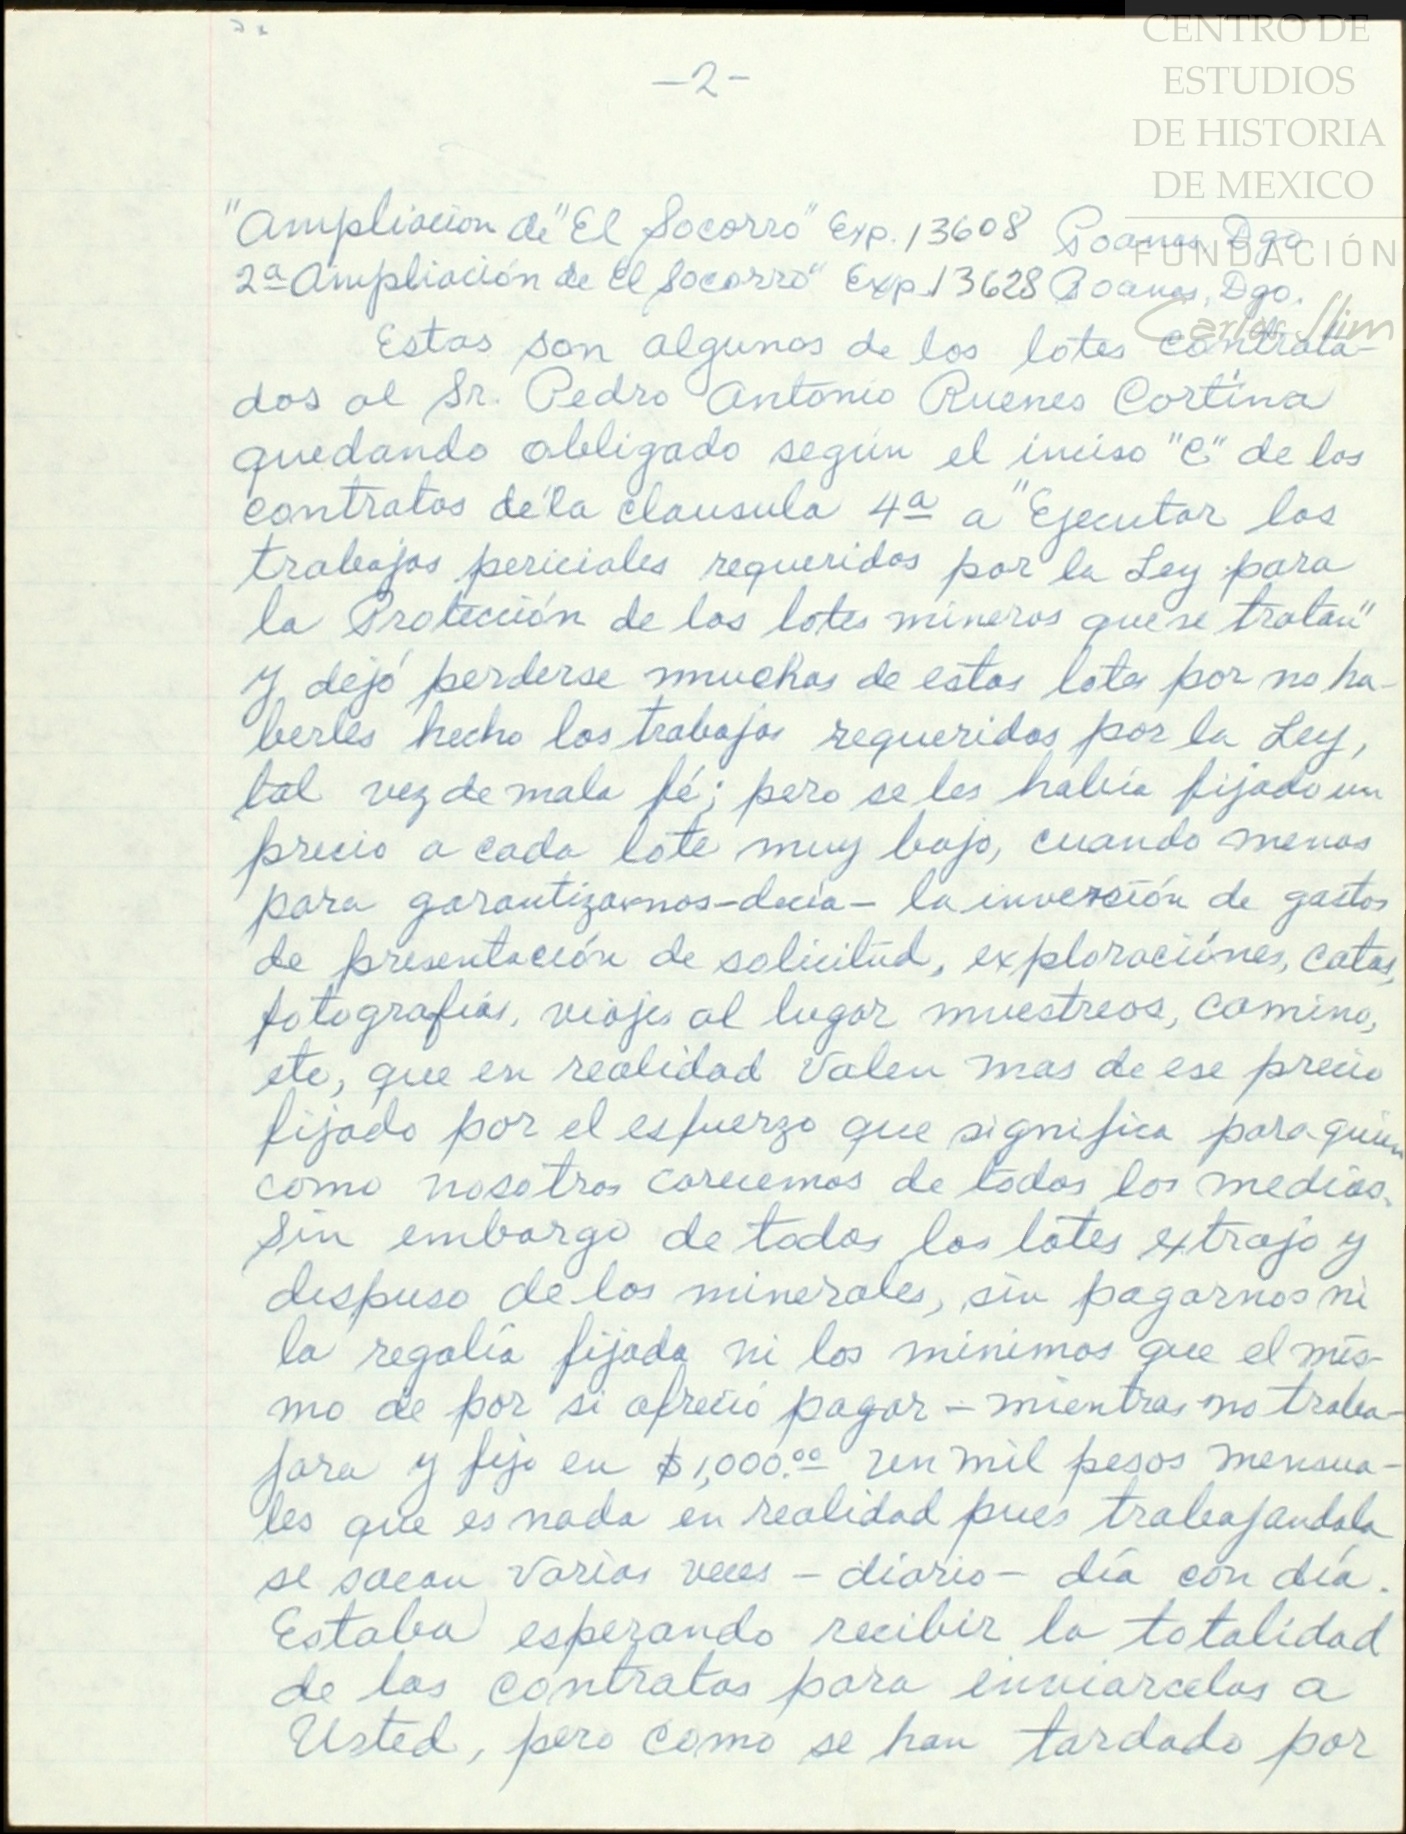 -2-
CENTRO DE
ESTUDIOS
DE HISTORIA
DE MEXICO
FUNDACIÓN
Carlos Slim
"Ampliacion de "El Socorro" Exp. 13608 Poanas Dgo
2ª Ampliación de El Socorro" Exp. 13628 Poanas, Dgo.
Estos son algunos de los lotes contrata-
dos al Sr. Pedro Antonio Ruenes Cortina
quedando obligado según el inciso "C" de los
contratos de la clausula 4ª a "Ejecutar los
trabajos periciales requeridos por la Ley para
la Protección de los lotes mineros que se tratan"
y dejó perderse muchos de estos lotes por no ha-
berles hecho los trabajos requeridos por la Ley,
tal vez de mala fé; pero se les había fijado un
precio a cada lote muy bajo, cuando menos
para garantizarnos-decia- la inversión de gastos
de presentación de solicitud, exploraciónes, catas,
fotografías, viajes al lugar muestreos, camino,
etc, que en realidad valen mas de ese precio
fijado por el esfuerzo que significa para quien
como nosotros carecemos de todos los medios.
Sin embargo de todos los lotes extrajo y
dispuso de los minerales, sin pagarnos ni
la regalía fijada ni los minimos que el mis-
mo de por si ofreció pagar - mientras no traba-
jara y fijo en $1,000.00 un mil pesos mensua-
les que es nada en realidad pues trabajandola
se sacan varias veces - diario - día con día.
Estaba esperando recibir la totalidad
de los contratos para enviarcelos a
Usted, pero como se han tardado por